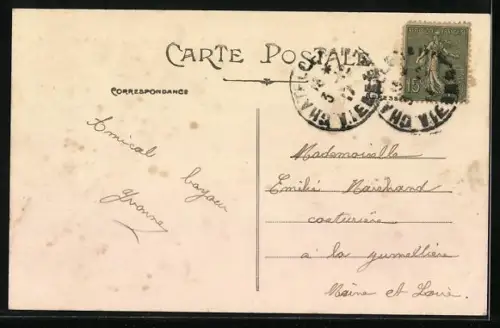 CARTE POSTALE
CORRESPONDANCE
Amical
Yvonne
15
Mademoiselle
Emilie Marchand
couturière
à la jumellière
Maine et Loire